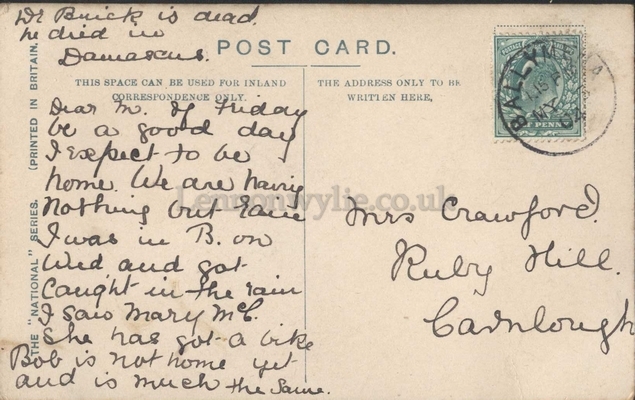 Dr Buick is dead
he died in
Damascus.
POST CARD.
THIS SPACE CAN BE USED FOR INLAND
CORRESPONDENCE ONLY.
THE ADDRESS ONLY TO BE
WRITTEN HERE,
Dear M. If Friday
be a good day
I expect to be
home. We are having
nothing but rain
I was in B. on
Wed, and got
caught in the rain
I saw Mary McC.
She has got a bike
Bob is not home yet
and is much the same.
Mrs Crawford.
Ruby Hill.
Carnlough
THE "NATIONAL" SERIES.
(PRINTED IN BRITAIN.)
BALLYMENA
MY
PENNY
Lennonwylie.co.uk